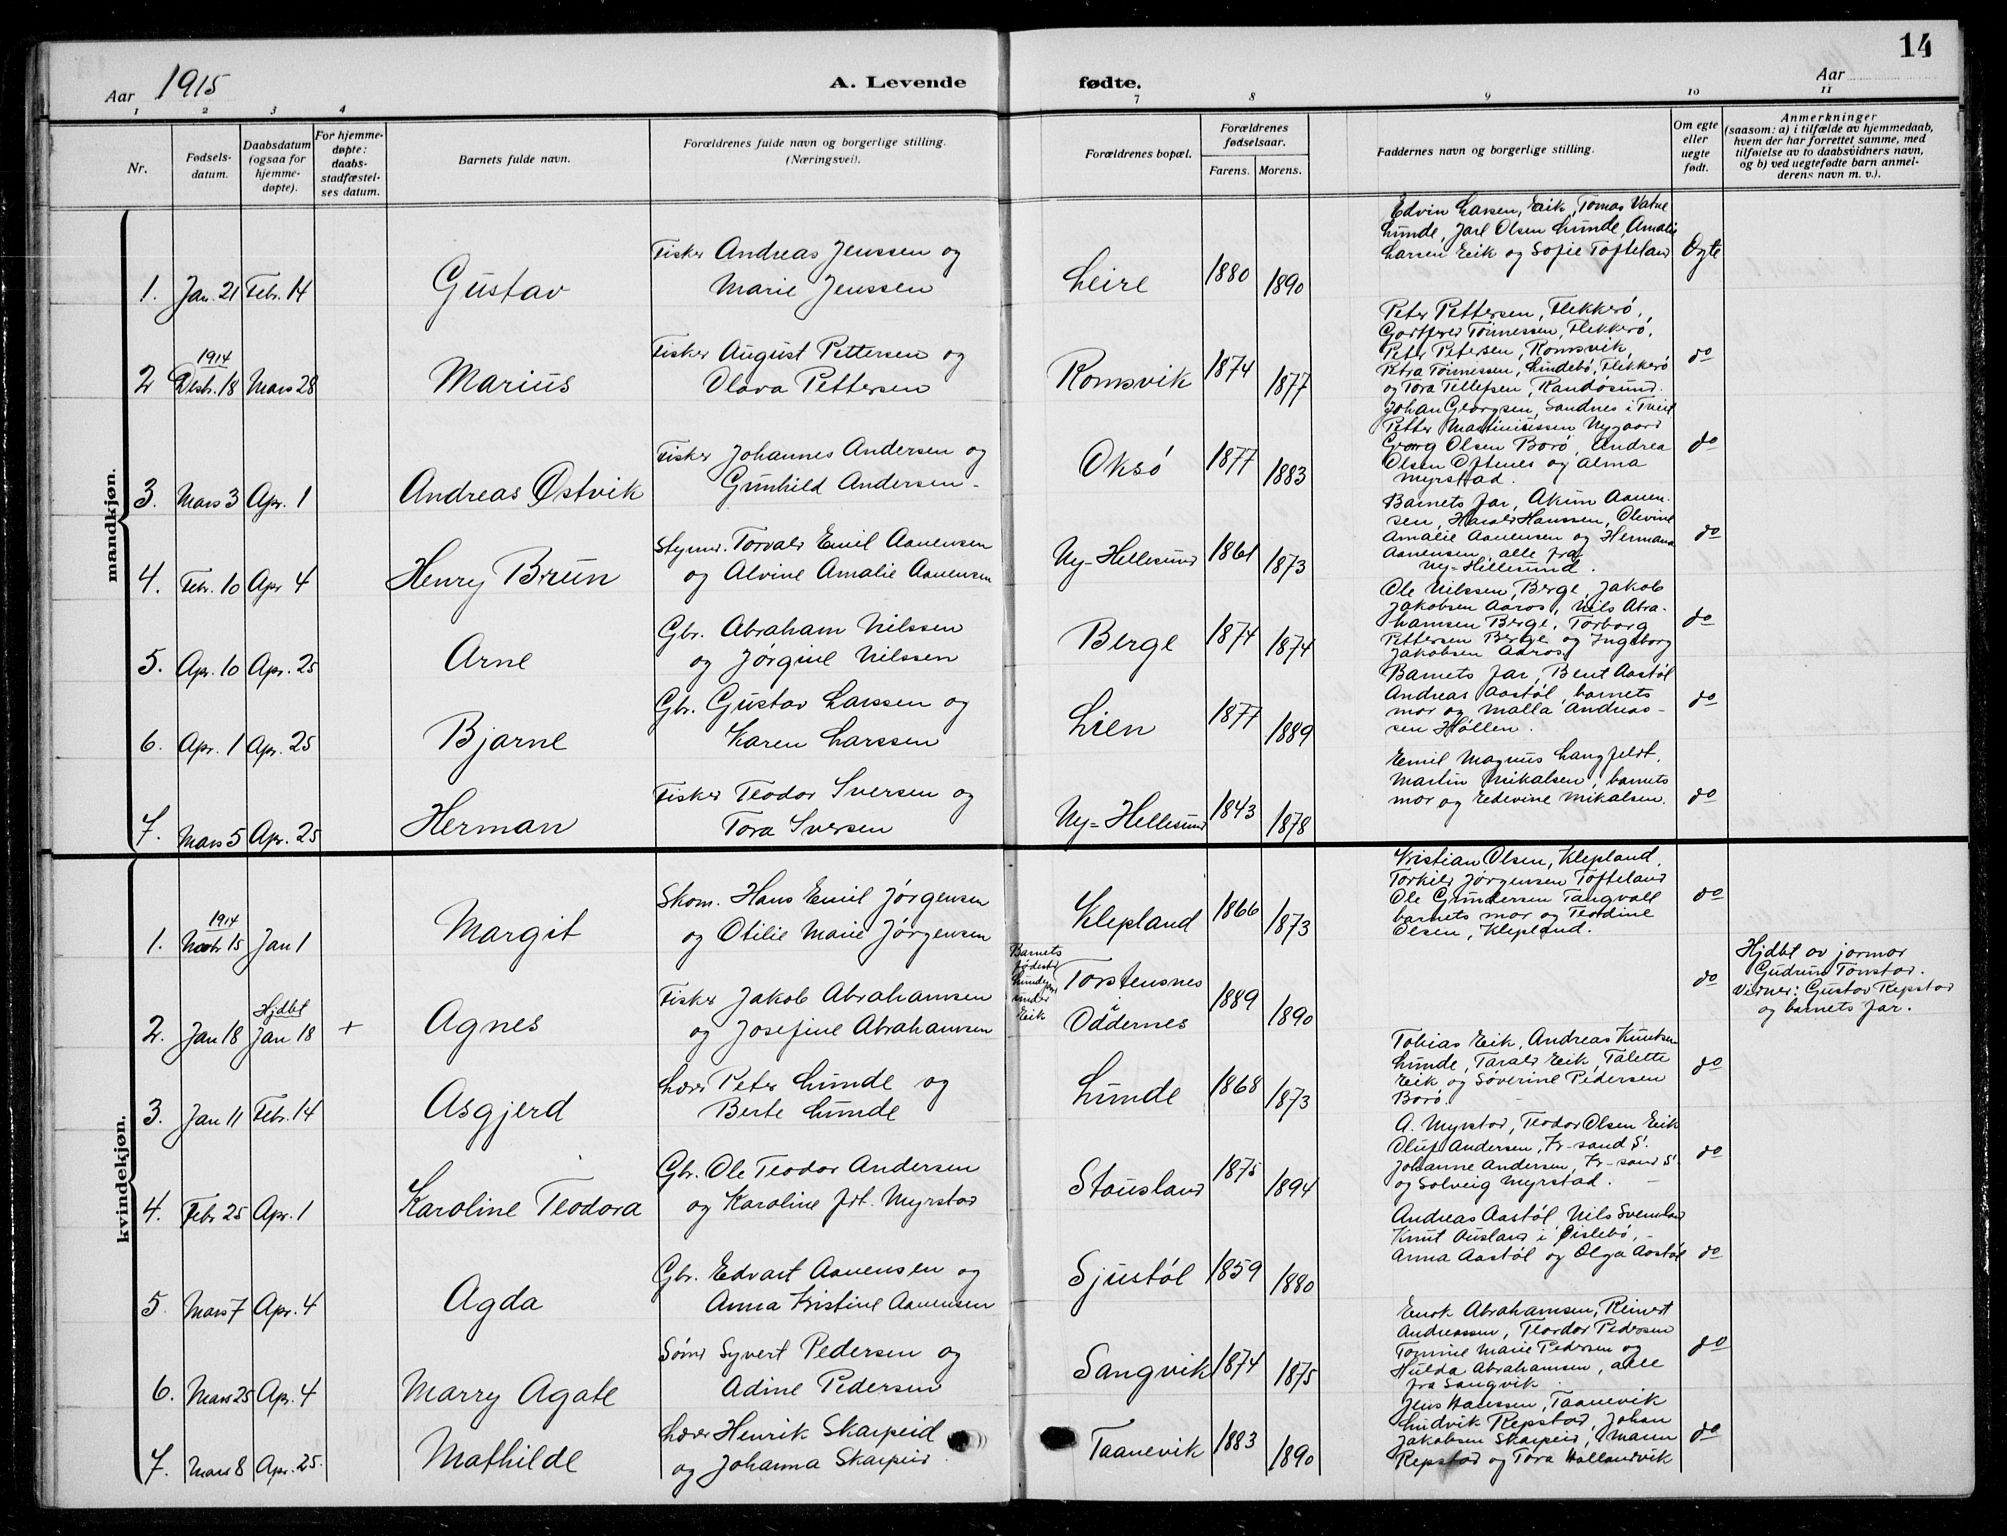 14
Aar 1915
A. Levende fødte.
Aar
1 2 3 4 7 8 9 10 11
Nr.
Fødsels-
datum.
Daabsdatum
(ogsaa for
hjemme-
døpte).
For hjemme-
døpte:
daabs-
stadfæstel-
ses datum.
Barnets fulde navn.
Forældrenes fulde navn og borgerlige stilling.
(Næringsvei).
Forældrenes bopæl.
Forældrenes
fødselsaar.
Farens. Morens.
Faddernes navn og borgerlige stilling.
Om egte
eller
uegte
født.
Anmerkninger
(saasom: a) i tilfælde av hjemmedaab,
hvem der har forrettet samme, med
tilføielse av to daabsvidners navn,
og b) ved uegtefødte barn anmel-
derens navn m. v.).
mandkjøn.
1. Jan. 21 Febr. 14 Gustav
Fisker Andreas Jenssen og
Marie Jenssen
Leire 1880 1890
Edvin Larsen, Eik, Tomas Vatne
Lunde, Jarl Olsen Lunde, Amalie
Larsen Eik og Sofie Tofteland
Egte
2 1914
Desbr. 18 Mars 28 Marius
Fisker August Pettersen og
Olava Pettersen
Romsvik 1874 1877
Peter Pettersen, Flekkerö,
Tönnessen, Flekkerö,
Peter Petersen, Romsvik,
Petra Tönnessen, Lindebö, Flekkerö
og Tora Tellefsen, Randösund.
do
3. Mars 3 Apr. 1 Andreas Østvik
Fisker Johannes Andersen og
Gunhild Andersen
Oksö 1877 1883
Johan Georgsen, Sandnes i Tveit
Petter Nygaard
Georg Olsen Borö, Andrea
Olsen Oftenes og Alma
Myrstad.
do
4. Febr. 10 Apr 4 Henry Brun
Styrmd. Torvald Emil Aanensen
og Alvine Amalie Aanensen
Ny-Hellesund 1861 1873
Barnets far, Akim Aanen-
sen, Harald Hanssen, Olevine
Amalie Aanensen og Hermana
Aanensen, alle fra
Ny-Hellesund.
do
5. Apr. 10 Apr. 25 Arne
Gbr. Abraham Nilssen
og Jørgine Nilssen
Berge 1874 1874
Ole Nilssen, Berge, Jakob
Jakobsen Aaros, Nils Abra-
hamsen Berge, Torborg
Pettersen Berge og Ingeborg
Jakobsen Aaros
do
6. Apr. 1 Apr. 25 Bjarne
Gbr. Gustav Larssen og
Karen Larssen
Lien 1877 1889
Barnets far, Bent Aastöl
Andreas Aastöl, barnets
mor og Malla Andreas-
sen Höllen.
do
7. Mars 5 Apr. 25 Herman
Fisker Teodor Iversen og
Tora Iversen
Ny-Hellesund 1843 1878
Emil Magnus Langfeldt,
Martin Mikalsen, barnets
mor og Edevine Mikalsen.
do
kvindekjøn.
1. 1914
Novbr. 15 Jan 1 Margit
Skom. Hans Emil Jörgensen
og Otilie Marie Jörgensen
Klepland 1866 1873
Kristian Olsen, Klepland,
Torkild Jørgensen Tofteland
Ole Gundersen Tangvall
barnets mor og Teodine
Olsen, Klepland.
do
2. Jan 18 Hjdbt
Jan 18 + Agnes
Fisker Jakob Abrahamsen
og Josefine Abrahamsen
Barnets
fødested
under
Eik
Torstensnes
i
Oddernes
1889 1890
do
Hjdbt av jormor
Gudrun Tonstad.
Vidner: Gustav Repstad
og barnets far.
3. Jan 11 Febr. 14 Asgjerd
Lærer Peter Lunde og
Berte Lunde
Lunde 1868 1873
Tobias Eik, Andreas Knutsen
Lunde, Tarald Eik, Talette
Eik og Söverine Pedersen
Borö.
do
4. Febr 25 Apr. 1 Karoline Teodora
Gbr. Ole Teodor Andersen
og Karoline fdt. Myrstad
Stausland 1875 1894
A. Myrstad, Teodor Olsen Eik
Oluf Andersen, Kr-sand S.
Johanne Andersen, Kr-sand S.
og Solveig Myrstad.
do
5. Mars 7 Apr. 4 Agda
Gbr. Edvart Aanensen og
Anna Kristine Aanensen
Sjustöl 1859 1880
Andreas Aastöl, Nils
Knut Ausland i Öislebö,
Anna Aastöl og Olga Aastöl
do
6. Mars 25 Apr. 4 Marry Agate
Sømd Syvert Pedersen og
Adine Pedersen
Sangvik 1874 1875
Enok Abrahamsen, Reinert
Andreassen, Teodor Pedersen
Tomine Marie Pedersen og
Hulda Abrahamsen, alle
fra Sangvik.
do
7. Mars 8 Apr. 25. Mathilde
Lærer Henrik Skarpeid
og Johanna Skarpeid.
Taanevik 1883 1890
Jens Hanssen, Taanevik
Ludvik Repstad, Johan
Jakobsen Skarpeid, Maren
Repstad og Tora Hallandvik
do